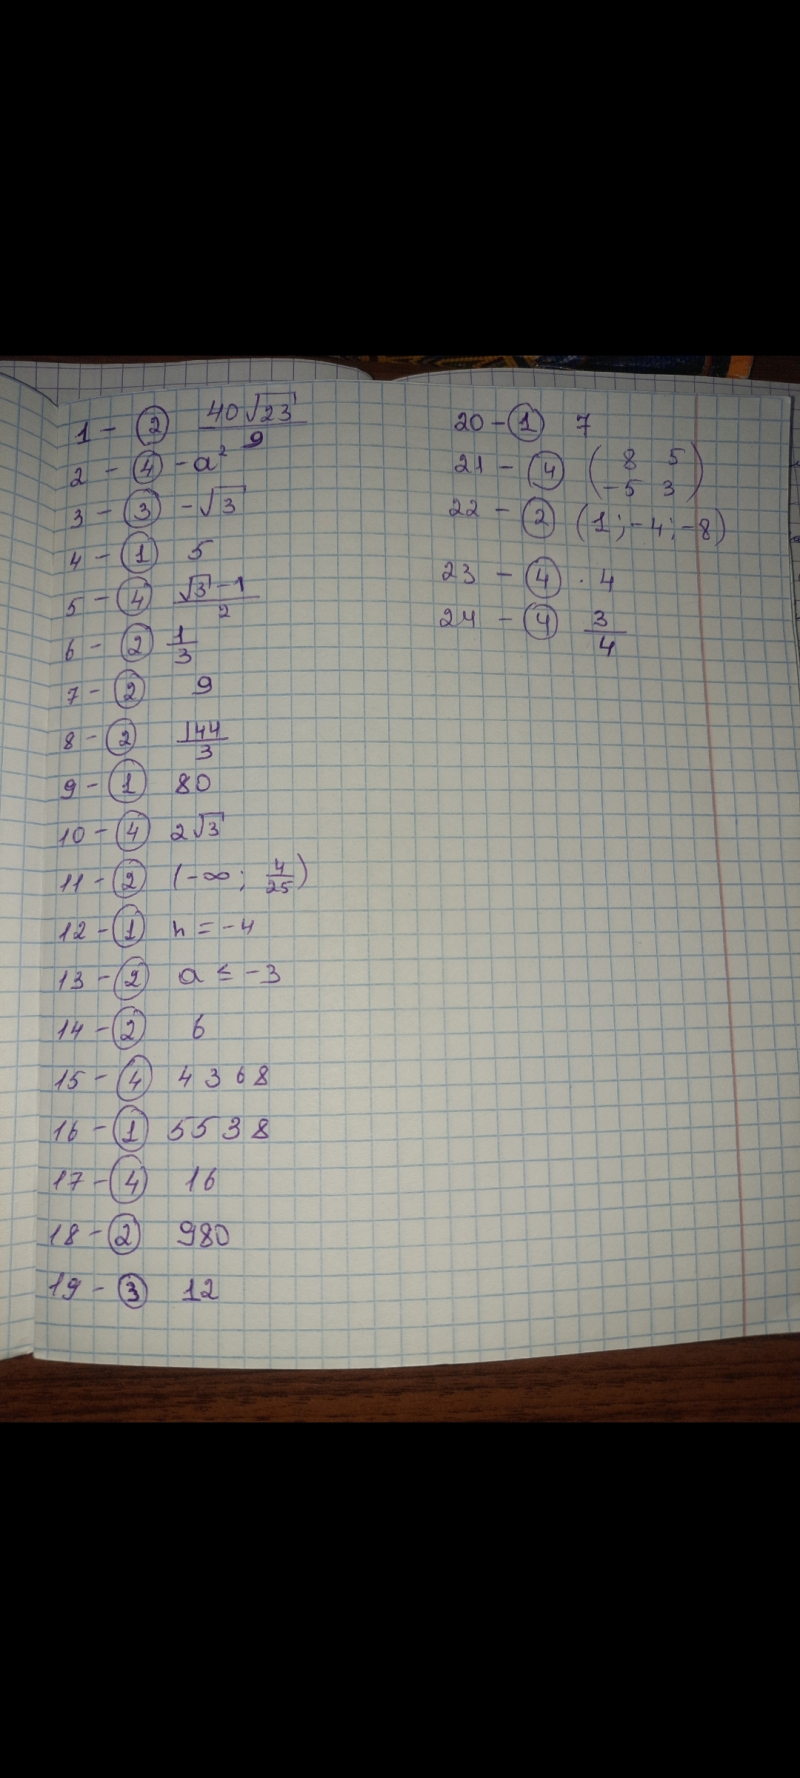 1 - ② 40√23/9
2 - ④ -a²
3 - ③ -√3
4 - ① 5
5 - ④ (√3-1)/2
6 - ② 1/3
7 - ② 9
8 - ② 144/3
9 - ① 80
10 - ④ 2√3
11 - ② (-∞; 4/25)
12 - ① n = -4
13 - ② a ≤ -3
14 - ② 6
15 - ④ 4368
16 - ① 5538
17 - ④ 16
18 - ② 980
19 - ③ 12
20 - ① 7
21 - ④ (8 5
-5 3)
22 - ② (1; -4; -8)
23 - ④ · 4
24 - ④ 3/4